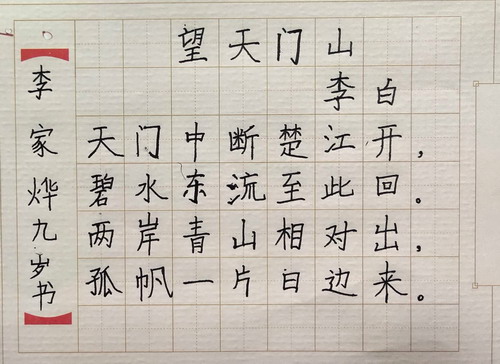 望天门山
李白
天门中断楚江开，
碧水东流至此回。
两岸青山相对出，
孤帆一片日边来。
李家烨九岁书